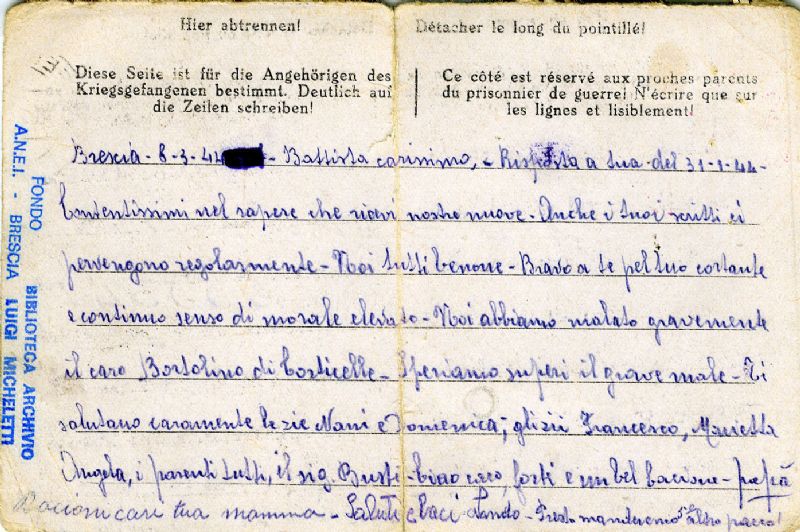 Hier abtrennen!
Détacher le long du pointillé!
Diese Seite ist für die Angehörigen des
Kriegsgefangenen bestimmt. Deutlich auf
die Zeilen schreiben!
Ce côté est réservé aux proches parents
du prisonnier de guerre! N'écrire que sur
les lignes et lisiblement!
Brescia - 6-3-44 - Battista carissimo, - Risposta a tua del 31-1-44 -
Contentissimi nel sapere che ricevi nostre nuove - Anche i tuoi scritti ci
pervengono regolarmente - Noi tutti benone - Bravo a te pel tuo costante
e continuo senso di morale elevato - Noi abbiamo malato gravemente
il caro Bortolino di Corticelle - Speriamo superi il grave male - Ti
salutano caramente le zie Nani e Domenica; gli zii Francesco, Marietta
Angela, i parenti tutti, il sig. Busti - Ciao caro, forti e un bel bacione - papà
Bacioni cari tua mamma - Saluti e baci Sandro - Presto manderemo altro pacco!
FONDO BIBLIOTECA ARCHIVIO
A.N.E.I. - BRESCIA LUIGI MICHELETTI